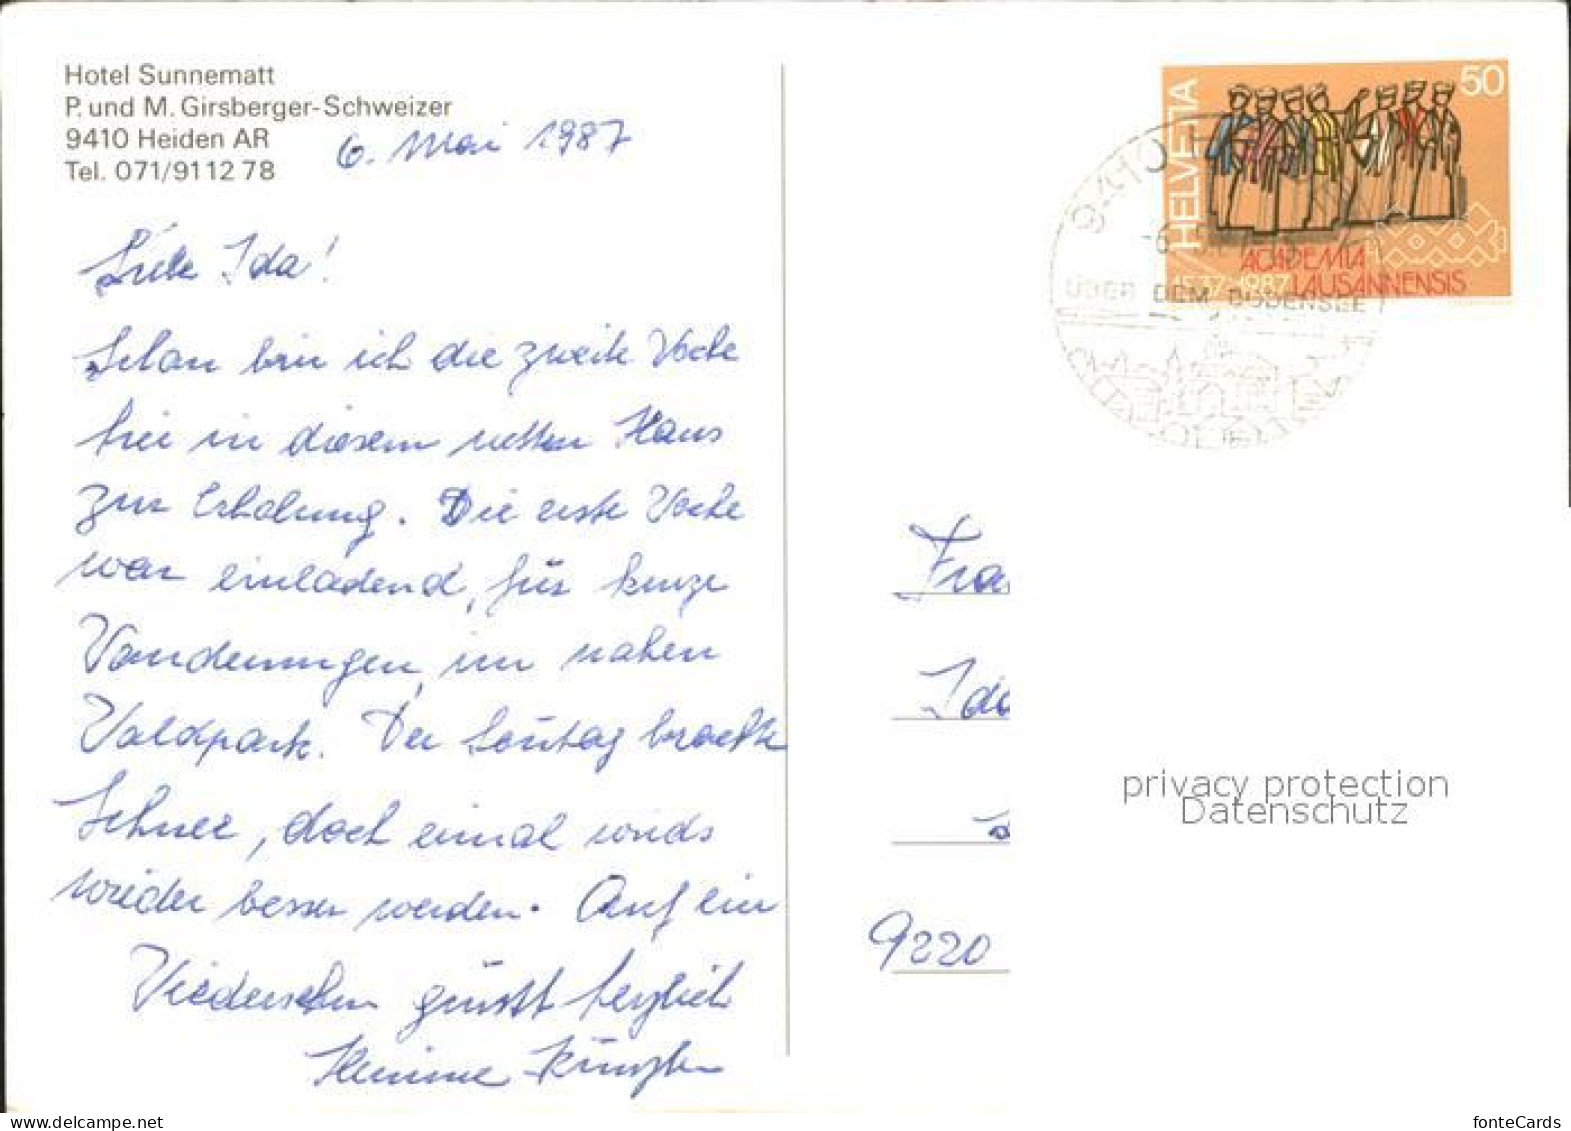 Hotel Sunnematt
P. und M. Girsberger-Schweizer
9410 Heiden AR
Tel. 071/91 12 78
6. Mai 1987
Liebe Ida!
Schon bin ich die zweite Woche
hier in diesem netten Haus
zur Erholung. Die erste Woche
war einladend, für kurze
Wanderungen, im nahen
Waldpark. Der Sonntag brachte
Schnee, doch einmal wirds
wieder besser werden. Auf ein
Wiedersehn grüsst herzlich
Künzler
HELVETIA
50
ACADEMIA
1537-1987 LAUSANNENSIS
9410
ÜBER DEM BODENSEE
Fra
Ida
9220
privacy protection
Datenschutz
fonteCards
delcampe.net